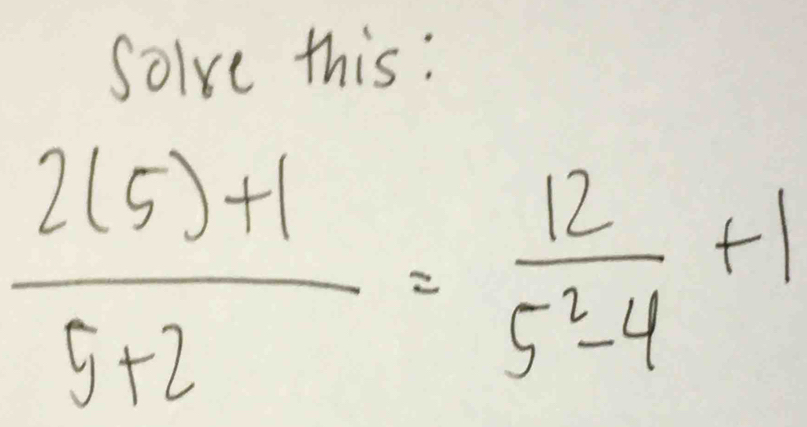 Solve this:
2(5)+1 / 5+2 = 12 / 5²-4 +1